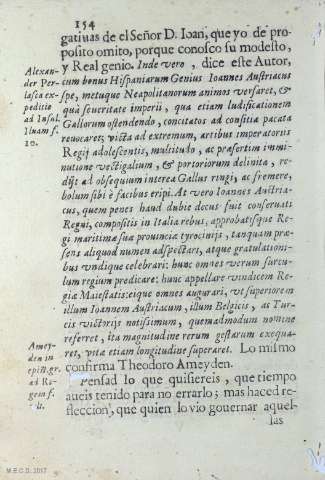 154
gatiuas de el Señor D. Ioan, que yo de pro-
posito omito, porque conosco su modesto,
y Real genio. Inde vero, dice este Autor,
cum bonus Hispaniarum Genius Ioannes Austriacus
spe, metuque Neapolitanorum animos versaret, &
quà seueritate imperii, qua etiam ludificationem
Gallorum ostendendo, concitatos ad consitia pacata
reuocaret; victa ad extremum, artibus imperatoriis
Regij adolescentis, multitudo, ac præsertim immi-
nutione vectigalium, & portoriorum delinita, re-
dijt ad obsequium interea Gallus ringi, ac fremere,
bolum sibi è facibus eripi. At vero Ioannes Austria-
cus, quem penes haud dubie decus fuit conseruati
Regni, compositis in Italia rebus, approbatisque Re-
gi maritimæ sua prouincia tyrocinijs, tanquam præ-
sens aliquod numen adspectari, atque gratulationi-
bus vndique celebrari: hunc omnes verum surcu-
lum regium predicare: hunc appellare vindicem Re-
giæ Maiestatis: eique omnes augurari, vt superiorem
illum Ioannem Austriacum, illum Belgicis, ac Tur-
cis victorijs notissimum, quemadmodum nomine
referret, ita magnitudine rerum gestarum exequa-
ret, vitæ etiam longitudine superaret. Lo mismo
confirma Theodoro Ameyden.
Pensad lo que quisiereis, que tiempo
aueis tenido para no errarlo; mas haced re-
fleccion, que quien lo vio gouernar aquel-
las
Alexan-
der Per-
lasca ex-
peditio
ad Insul.
Iluam f.
10.
Amey-
den in
epist. gr.
ad Re-
gem f.
M.E.C.D. 2017